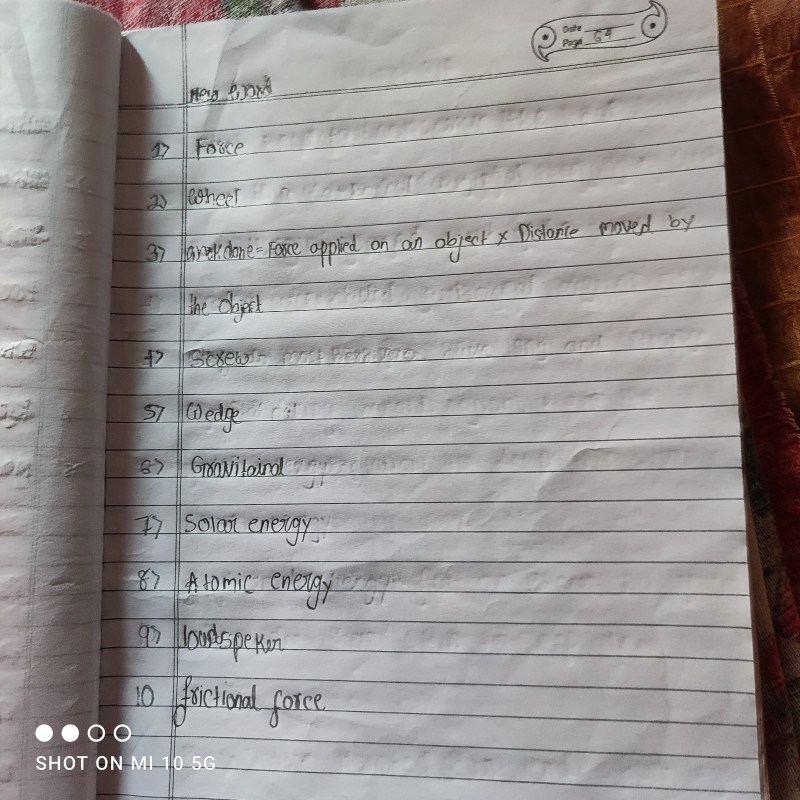 Date
Page 64
New Word
1) Force
2) Wheel
3) Work done = Force applied on an object x Distance moved by
the object
4) Screw
5) Wedge
6) Gravitainal
7) Solar energy
8) Atomic energy
9) loudspeker
10 frictional force
SHOT ON MI 10 5G